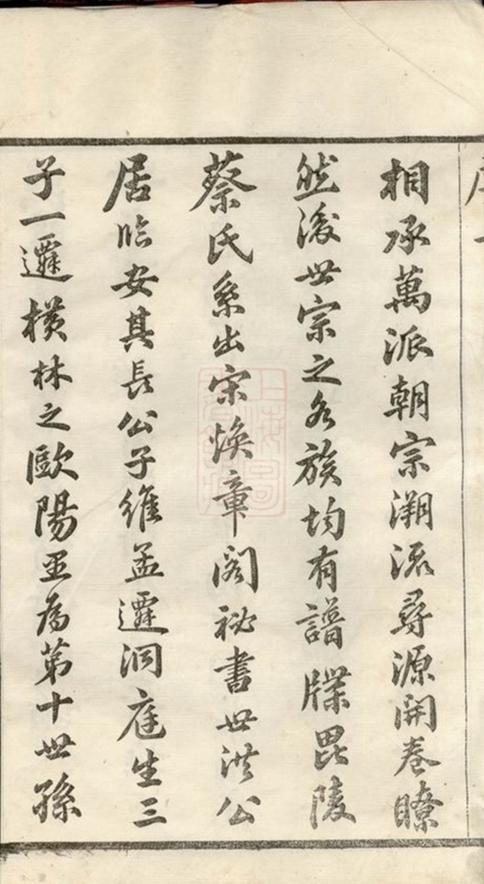 相承萬派朝宗溯流尋源開卷瞭
然後世宗之各族均有譜牒毘陵
蔡氏系出宋煥章閣祕書世洪公
居臨安其長公子維孟遷洞庭生三
子一遷橫林之歐陽里為第十世孫